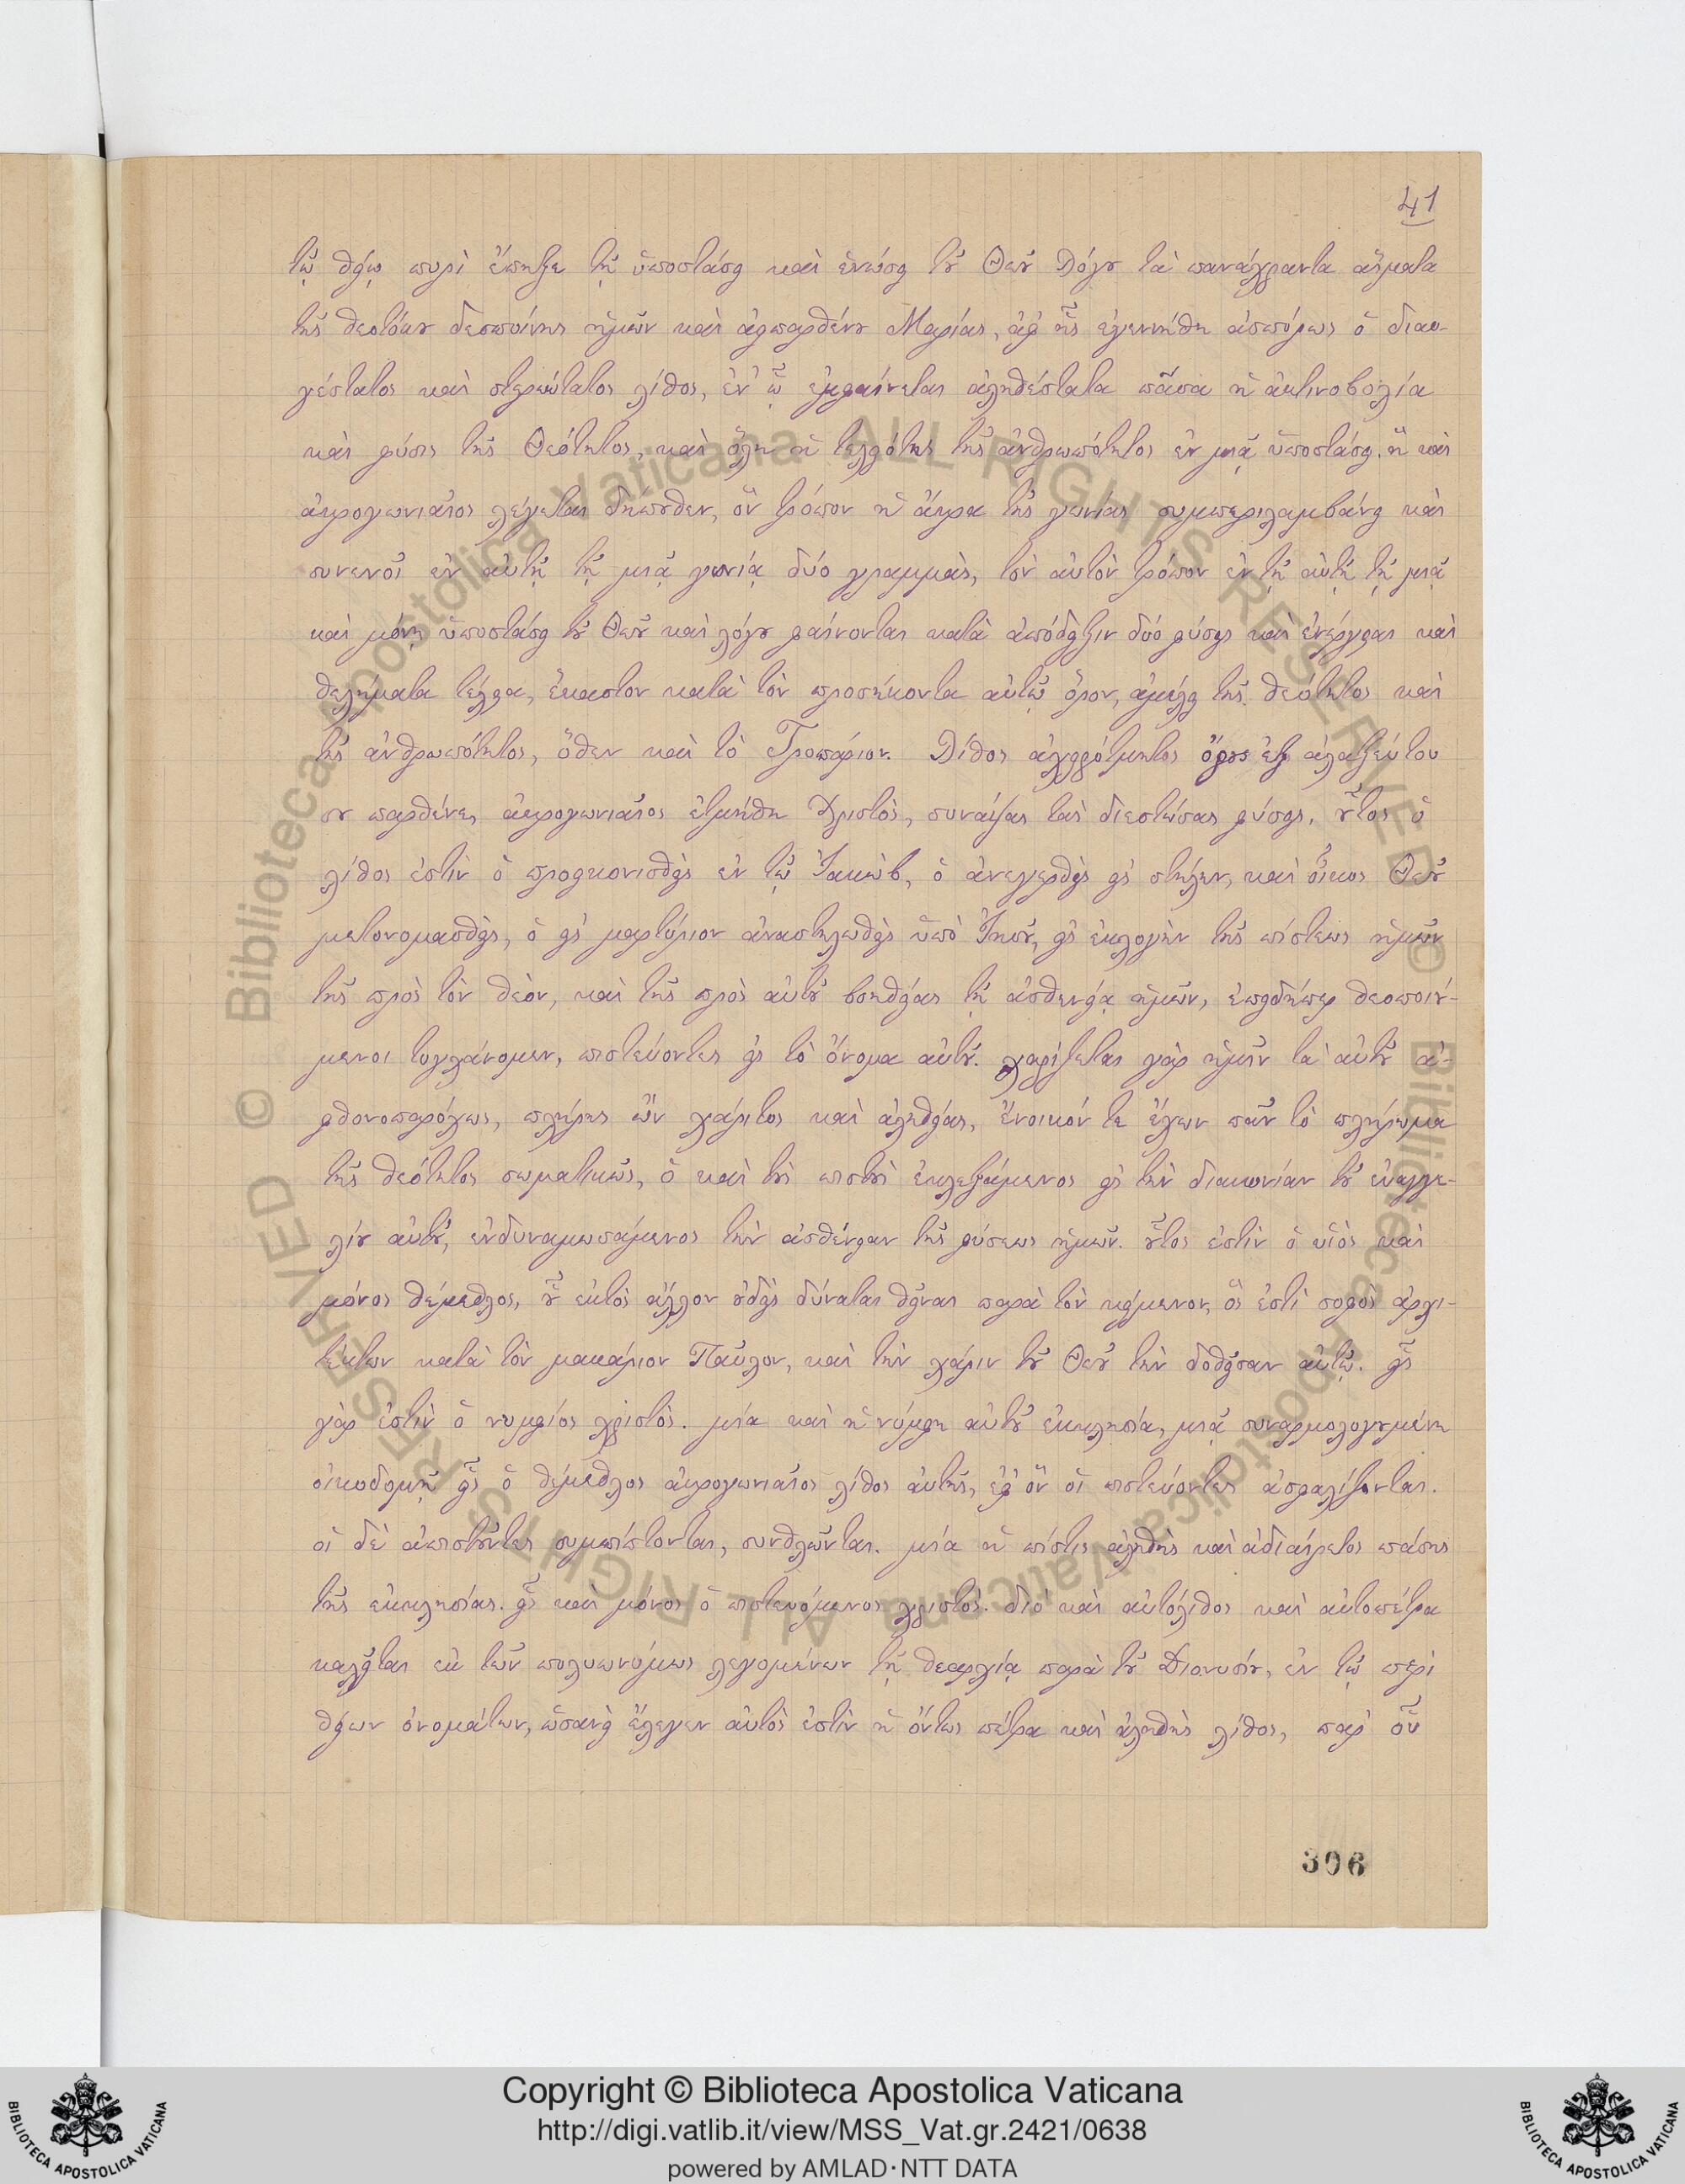 41
τῷ θείῳ πυρὶ ἔπηξε τῇ ὑποστάσει καὶ ἑνώσει τοῦ Θεοῦ Λόγου τὰ πανάχραντα αἵματα
τῆς θεοτόκου δεσποίνης ἡμῶν καὶ ἀειπαρθένου Μαρίας, ἀφ' ἧς ἐγεννήθη ἀσπόρως ὁ διαυ-
γέστατος καὶ στερεώτατος λίθος, ἐν ᾧ ἐμφαίνεται ἀληθέστατα πᾶσα ἡ ἀκτινοβολία
καὶ φύσις τῆς Θεότητος, καὶ ὅλη ἡ τελειότης τῆς ἀνθρωπότητος ἐν μιᾷ ὑποστάσει. ᾗ καὶ
ἀκρογωνιαῖος λέγεται δήπουθεν, ὃν τρόπον ἡ ἄκρα τῆς γωνίας συμπεριλαμβάνει καὶ
συνενοῖ ἐν αὐτῇ τῇ μιᾷ γωνίᾳ δύο γραμμάς, τὸν αὐτὸν τρόπον ἐν τῇ αὐτῇ τῇ μιᾷ
καὶ μόνῃ ὑποστάσει τοῦ Θεοῦ καὶ λόγου φαίνονται κατὰ ἀπόδειξιν δύο φύσεις καὶ ἐνέργειαι καὶ
θελήματα τέλεια, ἕκαστον κατὰ τὸν προσήκοντα αὐτῷ ὅρον, ἀμέλει τῆς θεότητος καὶ
τῆς ἀνθρωπότητος, ὅθεν καὶ τὸ Τροπάριον. Λίθος ἀχειρότμητος ὄρους ἐξ ἀλαξεύτου
σου παρθένε, ἀκρογωνιαῖος ἐτμήθη Χριστὸς, συνάψας τὰς διεστώσας φύσεις. οὗτος ὁ
λίθος ἐστὶν ὁ προεικονισθεὶς ἐν τῷ Ἰακὼβ, ὁ ἀνεγερθεὶς εἰς στήλην, καὶ οἶκος Θεοῦ
μετονομασθεὶς, ὁ εἰς μαρτύριον ἀναστηλωθεὶς ὑπὸ Ἰησοῦ, εἰς ἐκλογὴν τῆς πίστεως ἡμῶν
τῆς πρὸς τὸν θεὸν, καὶ τῆς πρὸς αὐτοῦ βοηθείας τῇ ἀσθενείᾳ ἡμῶν, ἐπειδήπερ θεοποιού-
μενοι τυγχάνομεν, πιστεύοντες εἰς τὸ ὄνομα αὐτοῦ. χαρίζεται γὰρ ἡμῖν τὰ αὐτοῦ ἀ-
φθονοπαρόχως, πλήρης ὢν χάριτος καὶ ἀληθείας, ἔνοικόν τε ἔχων πᾶν τὸ πλήρωμα
τῆς θεότητος σωματικῶς, ὁ καὶ τοὺς πιστοὺς ἐκλεξάμενος εἰς τὴν διακονίαν τοῦ εὐαγγε-
λίου αὐτοῦ, ἐνδυναμωσάμενος τὴν ἀσθένειαν τῆς φύσεως ἡμῶν. οὗτος ἐστὶν ὁ υἱὸς καὶ
μόνος θεμέθλος, οὗ ἐκτὸς ἄλλον οὐδεὶς δύναται θεῖναι παρὰ τὸν κείμενον, ὅς ἐστὶ σοφὸς ἀρχι-
τέκτων κατὰ τὸν μακάριον Παῦλον, καὶ τὴν χάριν τοῦ Θεοῦ τὴν δοθεῖσαν αὐτῷ. εἷς
γὰρ ἐστὶν ὁ νυμφίος χριστὸς. μία καὶ ἡ νύμφη αὐτοῦ ἐκκλησία, μιᾷ συναρμολογουμένη
οἰκοδομῇ εἷς ὁ θέμεθλος ἀκρογωνιαῖος λίθος αὐτῆς, ἐφ' ὃν οἱ πιστεύοντες ἀσφαλίζονται.
οἱ δὲ ἀπιστοῦντες συμπίπτονται, συνθλῶνται. μία ἡ πίστις ἀληθὴς καὶ ἀδιαίρετος πάσης
τῆς ἐκκλησίας. εἷς καὶ μόνος ὁ πιστευόμενος χριστὸς. διὸ καὶ αὐτόλιθος καὶ αὐτοπέτρα
καλεῖται ἐκ τῶν πολυωνύμως λεγομένων τῇ θεαρχίᾳ παρὰ τοῦ Διονυσίου, ἐν τῷ περὶ
θείων ὀνομάτων, ὡσανεὶ ἔλεγεν αὐτὸς ἐστὶν ἡ ὄντως πέτρα καὶ ἀληθὴς λίθος, παρ' οὗ
306
© Biblioteca Apostolica Vaticana ALL RIGHTS RESERVED
© Biblioteca Apostolica Vaticana ALL RIGHTS RESERVED
Copyright © Biblioteca Apostolica Vaticana
http://digi.vatlib.it/view/MSS_Vat.gr.2421/0638
powered by AMLAD·NTT DATA
BIBLIOTECA APOSTOLICA VATICANA
BIBLIOTECA APOSTOLICA VATICANA